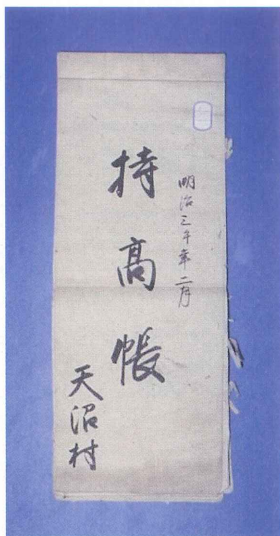 明治三午年二月
持高帳
天沼村